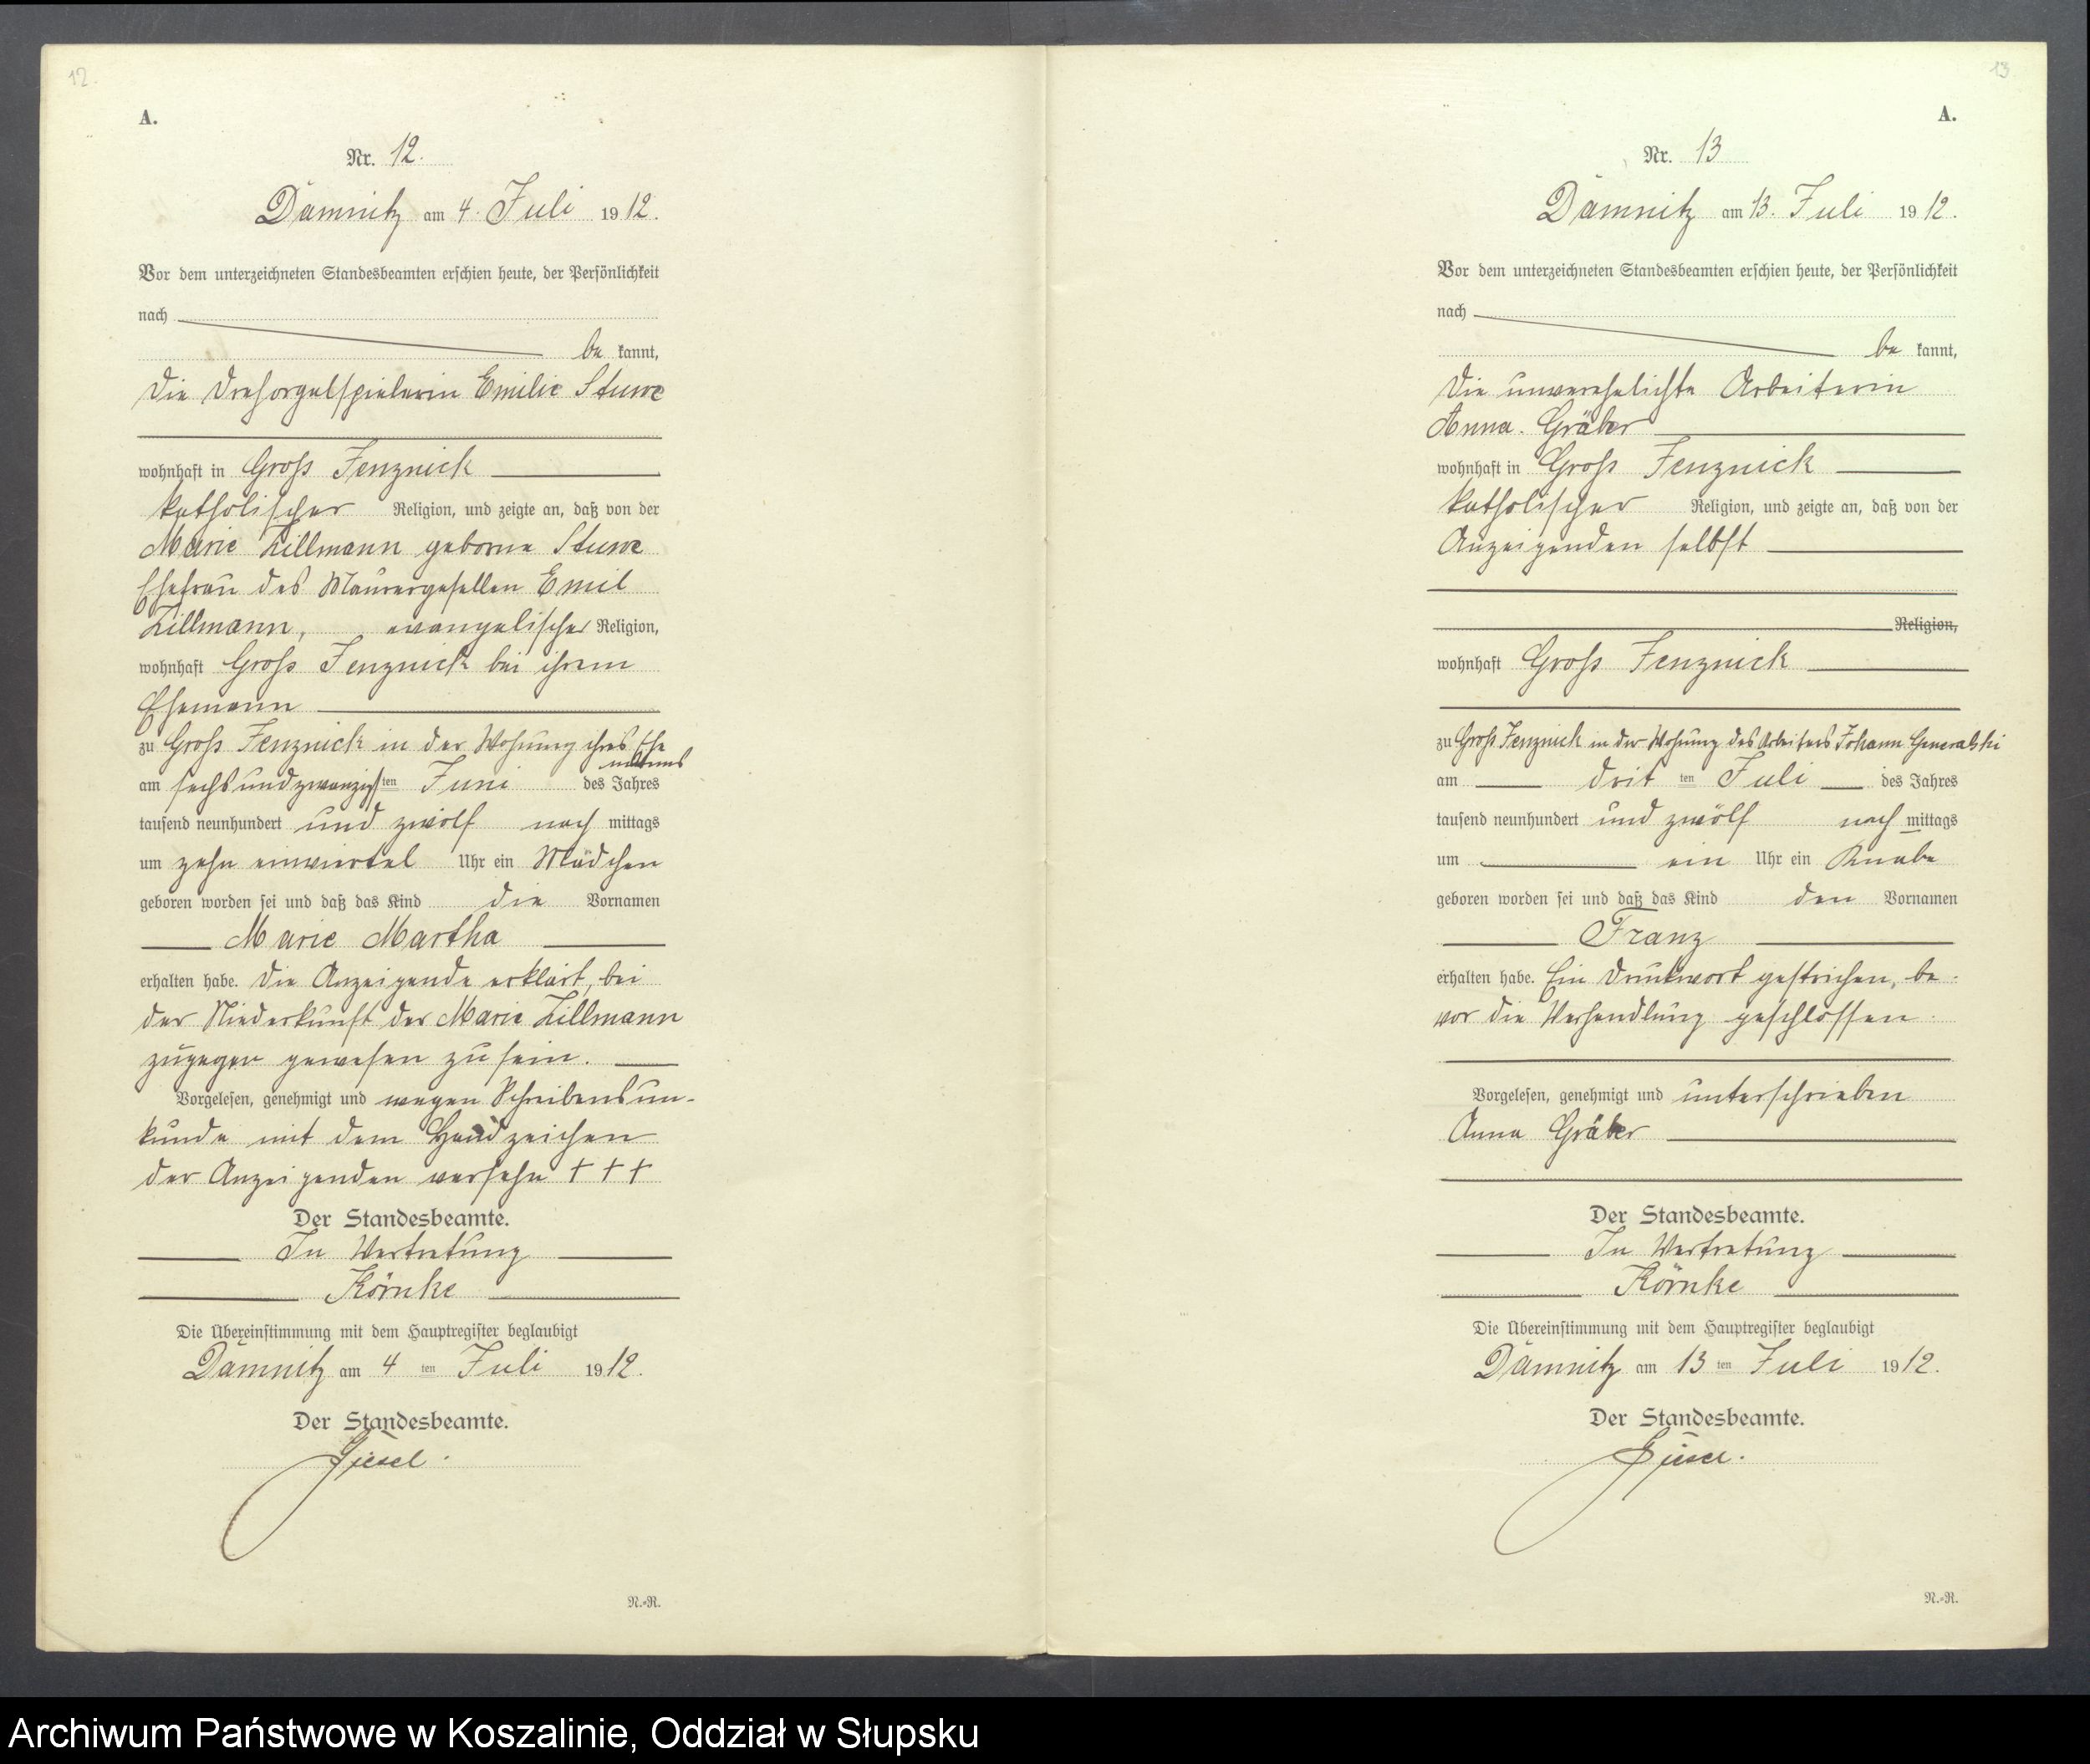 12.
A.
Nr. 12.
Damnitz am 4. Juli 1912.
Vor dem unterzeichneten Standesbeamten erschien heute, der Persönlichkeit
nach
be kannt,
die Drehorgelspielerin Emilie Stuwe
wohnhaft in Groß Jenznick
katholischer Religion, und zeigte an, daß von der
Marie Zillmann geborne Stuwe
Ehefrau des Maurergesellen Emil
Zillmann, evangelischer Religion,
wohnhaft Groß Jenznick bei ihrem
Ehemann
zu Groß Jenznick in der Wohnung ihres Ehe
manns
am sechsundzwanzigsten Juni des Jahres
tausend neunhundert und zwölf nach mittags
um zehn einviertel Uhr ein Mädchen
geboren worden sei und daß das Kind die Vornamen
Marie Martha
erhalten habe. Die Anzeigende erklärt, bei
der Niederkunft der Marie Zillmann
zugegen gewesen zu sein.
Vorgelesen, genehmigt und wegen Schreibensun-
kunde mit dem Handzeichen
der Anzeigenden versehn + + +
Der Standesbeamte.
In Vertretung
Körnke
Die Übereinstimmung mit dem Hauptregister beglaubigt
Damnitz am 4 ten Juli 1912.
Der Standesbeamte.
N.-R.
13
A.
Nr. 13
Damnitz am 13. Juli 1912.
Vor dem unterzeichneten Standesbeamten erschien heute, der Persönlichkeit
nach
be kannt,
die unverehelichte Arbeiterin
Anna Gräber
wohnhaft in Groß Jenznick
katholischer Religion, und zeigte an, daß von der
Anzeigenden selbst
Religion,
wohnhaft Groß Jenznick
zu Groß Jenznick in der Wohnung des Arbeiters Johann Generalski
am drit ten Juli des Jahres
tausend neunhundert und zwölf nach mittags
um ein Uhr ein Knabe
geboren worden sei und daß das Kind den Vornamen
Franz
erhalten habe. Ein Druckwort gestrichen, be-
vor die Verhandlung geschlossen.
Vorgelesen, genehmigt und unterschrieben
Anna Gräber
Der Standesbeamte.
In Vertretung
Körnke
Die Übereinstimmung mit dem Hauptregister beglaubigt
Damnitz am 13 ten Juli 1912.
Der Standesbeamte.
N.-R.
Archiwum Państwowe w Koszalinie, Oddział w Słupsku